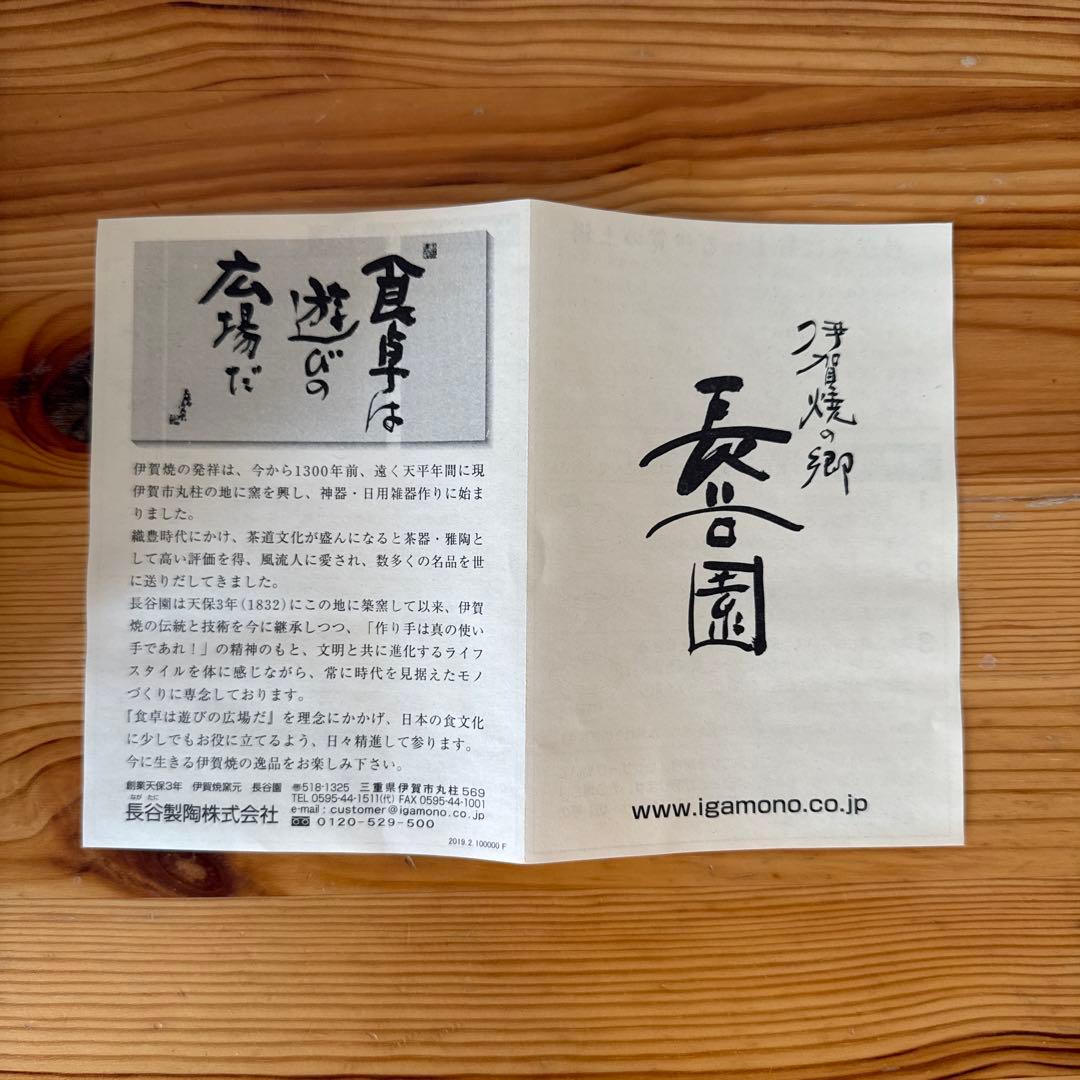 食卓は
遊びの
広場だ
伊賀焼の発祥は、今から1300年前、遠く天平年間に現
伊賀市丸柱の地に窯を興し、神器・日用雑器作りに始ま
りました。
織豊時代にかけ、茶道文化が盛んになると茶器・雅陶と
して高い評価を得、風流人に愛され、数多くの名品を世
に送りだしてきました。
長谷園は天保3年(1832)にこの地に築窯して以来、伊賀
焼の伝統と技術を今に継承しつつ、「作り手は真の使い
手であれ！」の精神のもと、文明と共に進化するライフ
スタイルを体に感じながら、常に時代を見据えたモノ
づくりに専念しております。
『食卓は遊びの広場だ』を理念にかかげ、日本の食文化
に少しでもお役に立てるよう、日々精進して参ります。
今に生きる伊賀焼の逸品をお楽しみ下さい。
創業天保3年 伊賀焼窯元 長谷園
ながたに
長谷製陶株式会社
〠518-1325 三重県伊賀市丸柱569
TEL 0595-44-1511(代) FAX 0595-44-1001
e-mail: customer@igamono.co.jp
0120-529-500
2019.2.100000 F
伊賀焼の郷
長谷園
www.igamono.co.jp